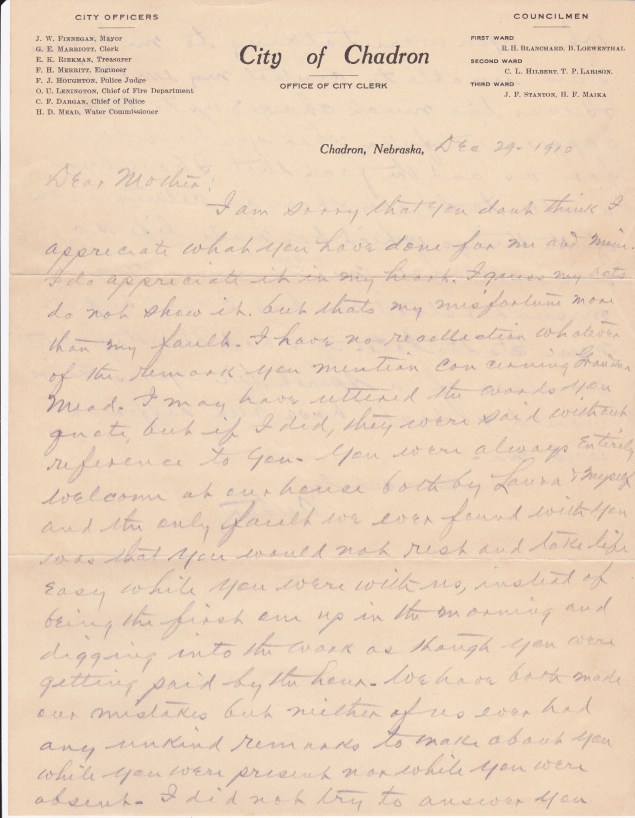 CITY OFFICERS
J. W. FINNEGAN, Mayor
G. E. MARRIOTT, Clerk
E. K. RIEKMAN, Treasurer
F. H. MERRITT, Engineer
F. J. HOUGHTON, Police Judge
O. U. LENINGTON, Chief of Fire Department
C. F. DARGAN, Chief of Police
H. D. MEAD, Water Commissioner
City of Chadron
OFFICE OF CITY CLERK
COUNCILMEN
FIRST WARD
R. H. BLANCHARD, B. LOEWENTHAL
SECOND WARD
C. L. HILBERT, T. P. LARISON.
THIRD WARD
J. F. STANTON, H. F. MAIKA
Chadron, Nebraska, Dec 29- 1910
Dear Mother:
I am sorry that you dont think I
appreciate what you have done for me and mine.
I do appreciate it in my heart. I guess my acts
do not show it. but thats my misfortune more
than my fault. I have no recollection whatever
of the remark you mention concerning
Mead. I may have uttered the words you
quote, but if I did, they were said without
reference to you. You were always entirely
welcome at our house both by Laura & myself
and the only fault we ever found with you
was that you would not rest and take life
easy while you were with us, insted of
being the first one up in the morning and
digging into the work as though you were
getting paid by the hour. We have both made
our mistakes but neither of us ever had
any unkind remarks to make about you
while you were present nor while you were
absent. I did not try to answer you